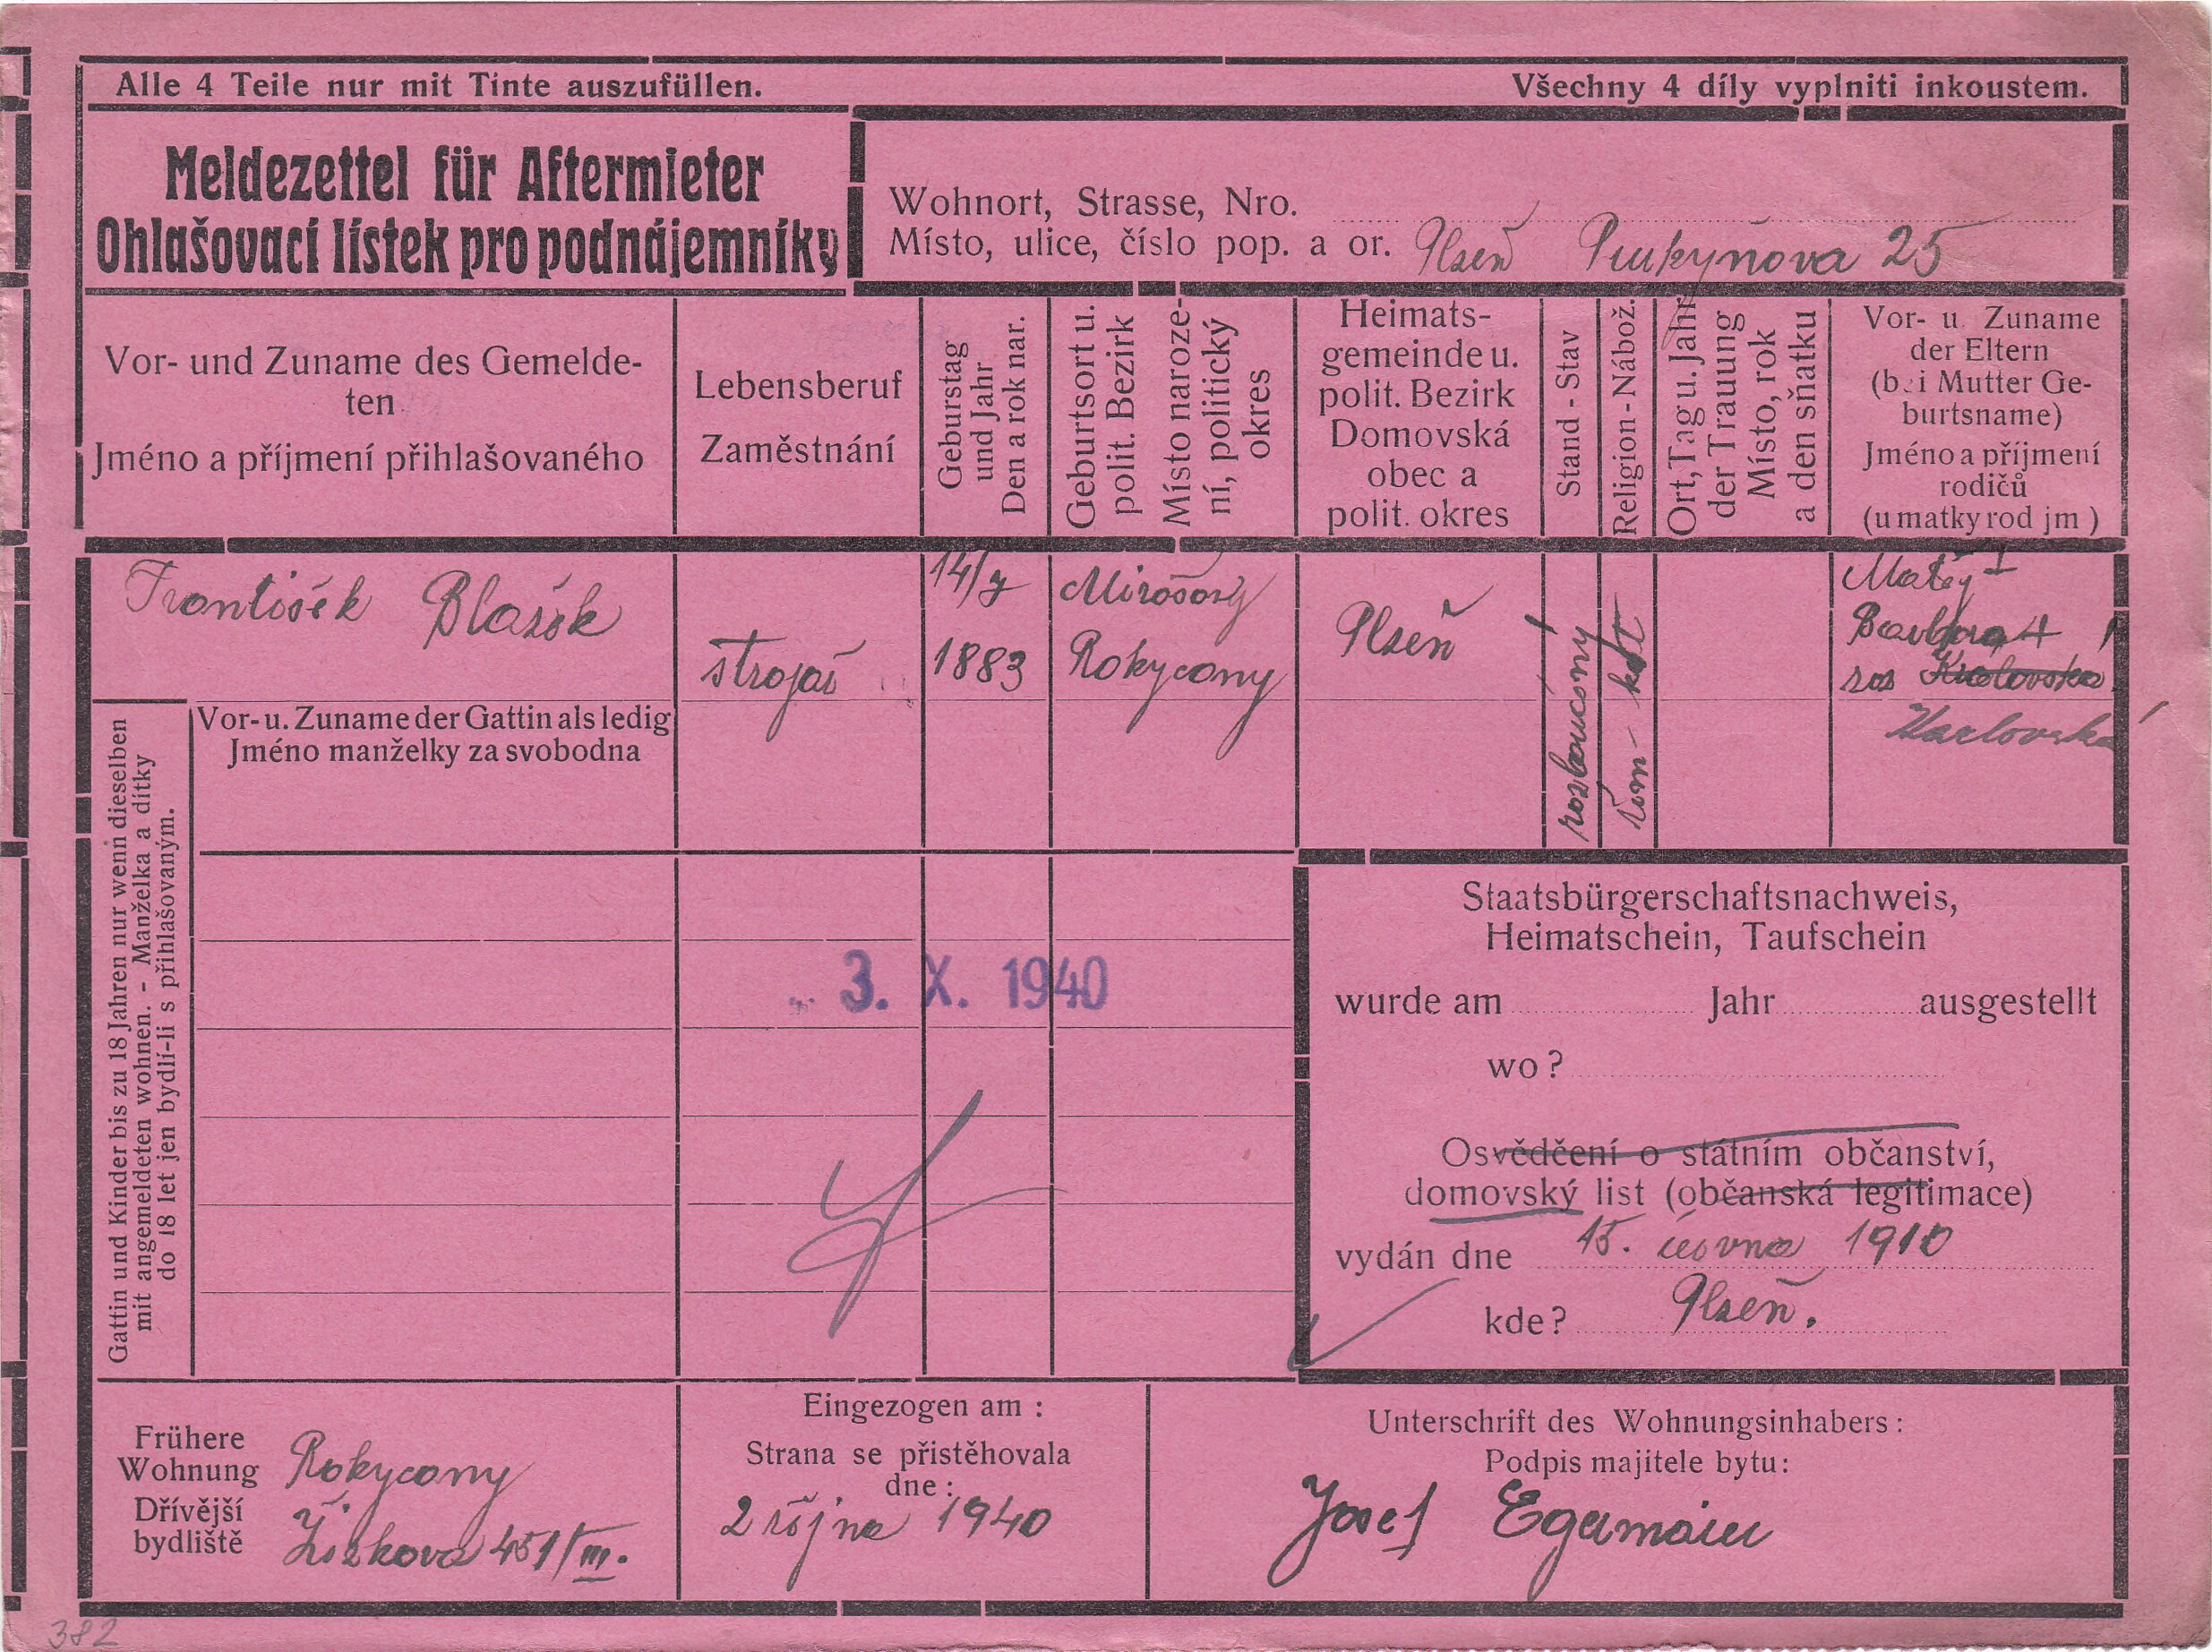 Alle 4 Teile nur mit Tinte auszufüllen.
Všechny 4 díly vyplniti inkoustem.
Meldezettel für Aftermieter
Ohlašovací lístek pro podnájemníky
Wohnort, Strasse, Nro.
Místo, ulice, číslo pop. a or. Plzeň Purkyňova 25
Vor- und Zuname des Gemelde-
ten
Jméno a příjmení přihlašovaného
Lebensberuf
Zaměstnání
Geburstag
und Jahr
Den a rok nar.
Geburtsort u.
polit. Bezirk
Místo naroze-
ní, politický
okres
Heimats-
gemeinde u.
polit. Bezirk
Domovská
obec a
polit. okres
Stand - Stav
Religion - Nábož.
Ort, Tag u. Jahr
der Trauung
Místo, rok
a den sňatku
Vor- u. Zuname
der Eltern
(bei Mutter Ge-
burtsname)
Jméno a příjmení
rodičů
(u matky rod jm )
František Blažek
strojař
14/7
1883
Mirošov
Rokycany
Plzeň
rozloučený
řím - kat
Matěj
Barbora
roz Karlovská
Vor- u. Zuname der Gattin als ledig
Jméno manželky za svobodna
Gattin und Kinder bis zu 18 Jahren nur wenn dieselben
mit angemeldeten wohnen. - Manželka a dítky
do 18 let jen bydlí-li s přihlašovaným.
3. X. 1940
Staatsbürgerschaftsnachweis,
Heimatschein, Taufschein
wurde am Jahr ausgestellt
wo ?
Osvědčení o státním občanství,
domovský list (občanská legitimace)
vydán dne 15. června 1910
kde? Plzeň.
Frühere
Wohnung
Dřívější
bydliště
Rokycany
Žižkova 451/III.
Eingezogen am :
Strana se přistěhovala
dne :
2 října 1940
Unterschrift des Wohnungsinhabers :
Podpis majitele bytu:
Josef Egermaier
382